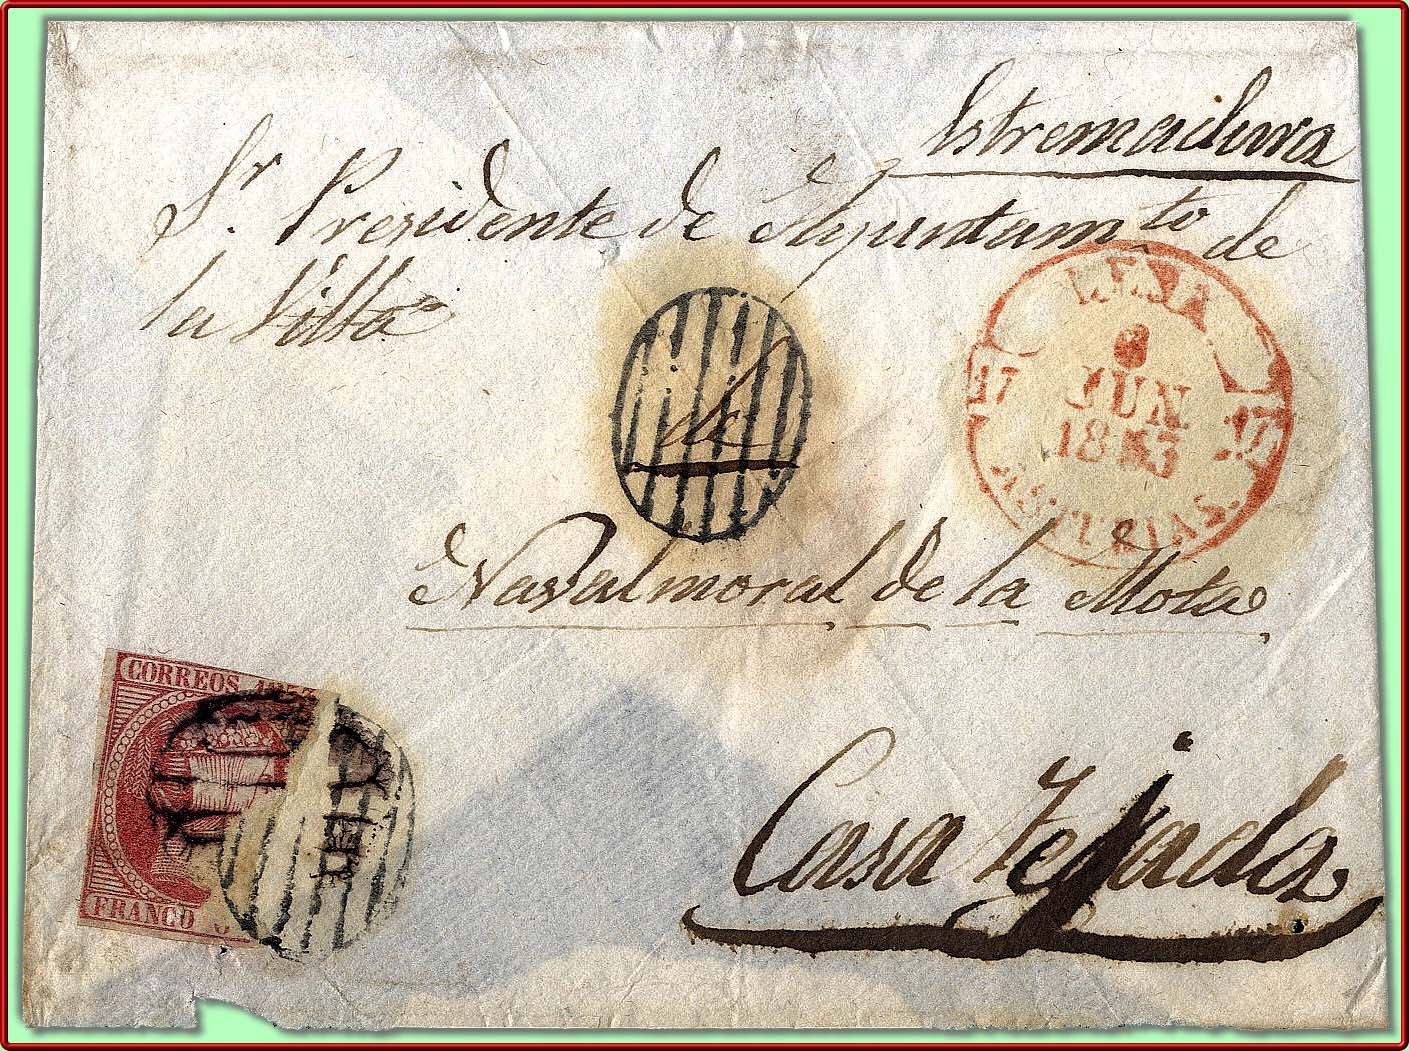 Estremadura
Sr. Presidente de Ayuntamto de
la Villa
8
JUN
1853
de
ASTURIAS.
Navalmoral de la Mota
CORREOS 1853
FRANCO
Casa Tejada